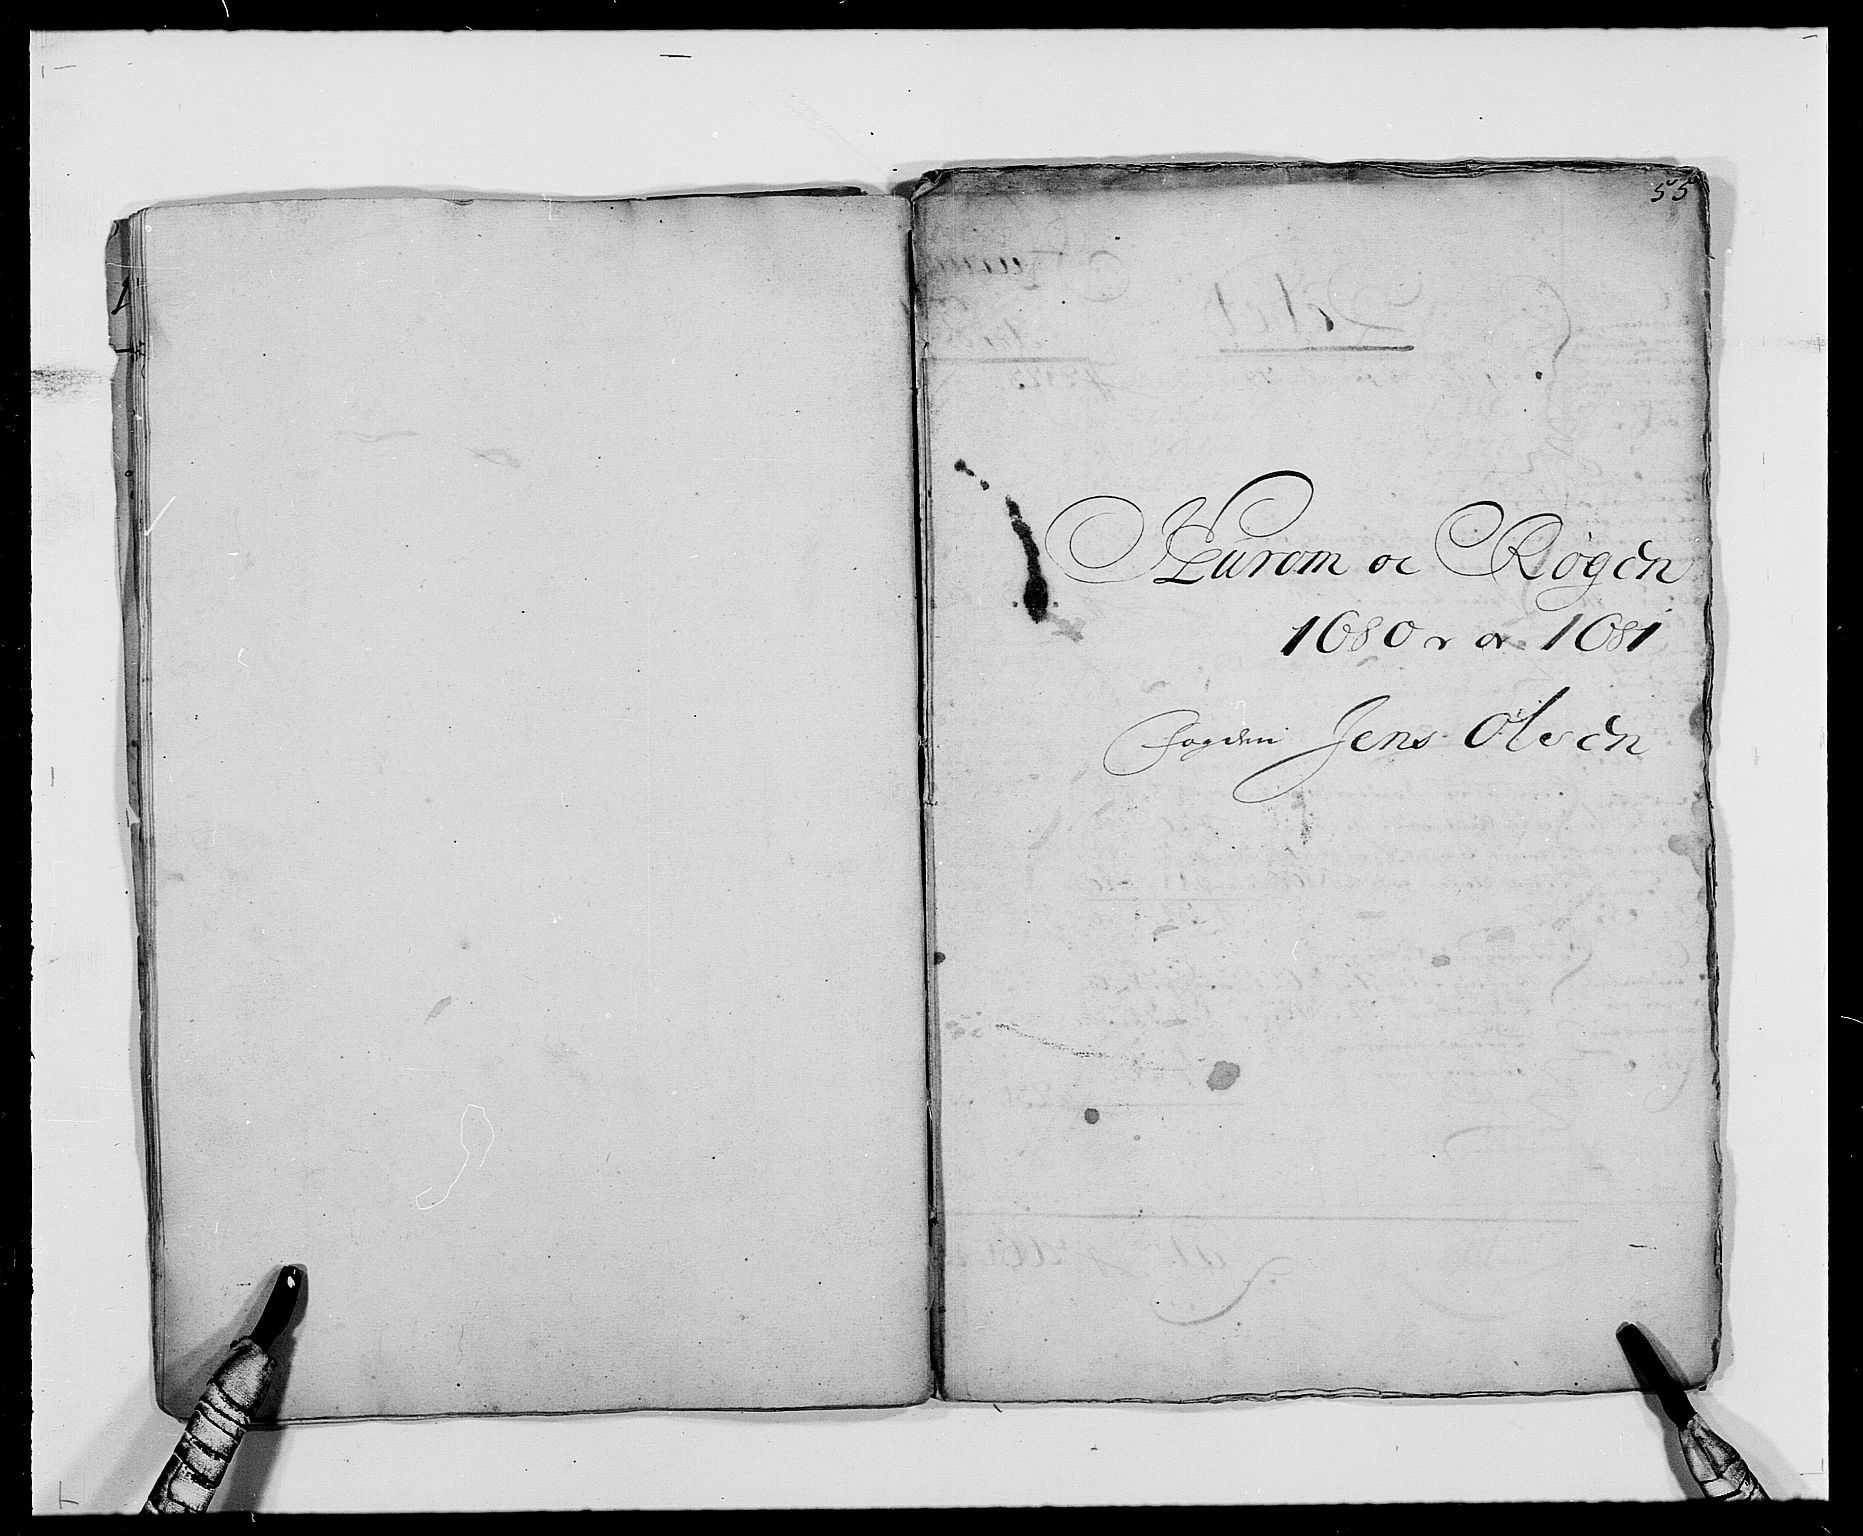 55
Hurom oc Røgen
1680 r oc 1681
Fogden Jens Olsen